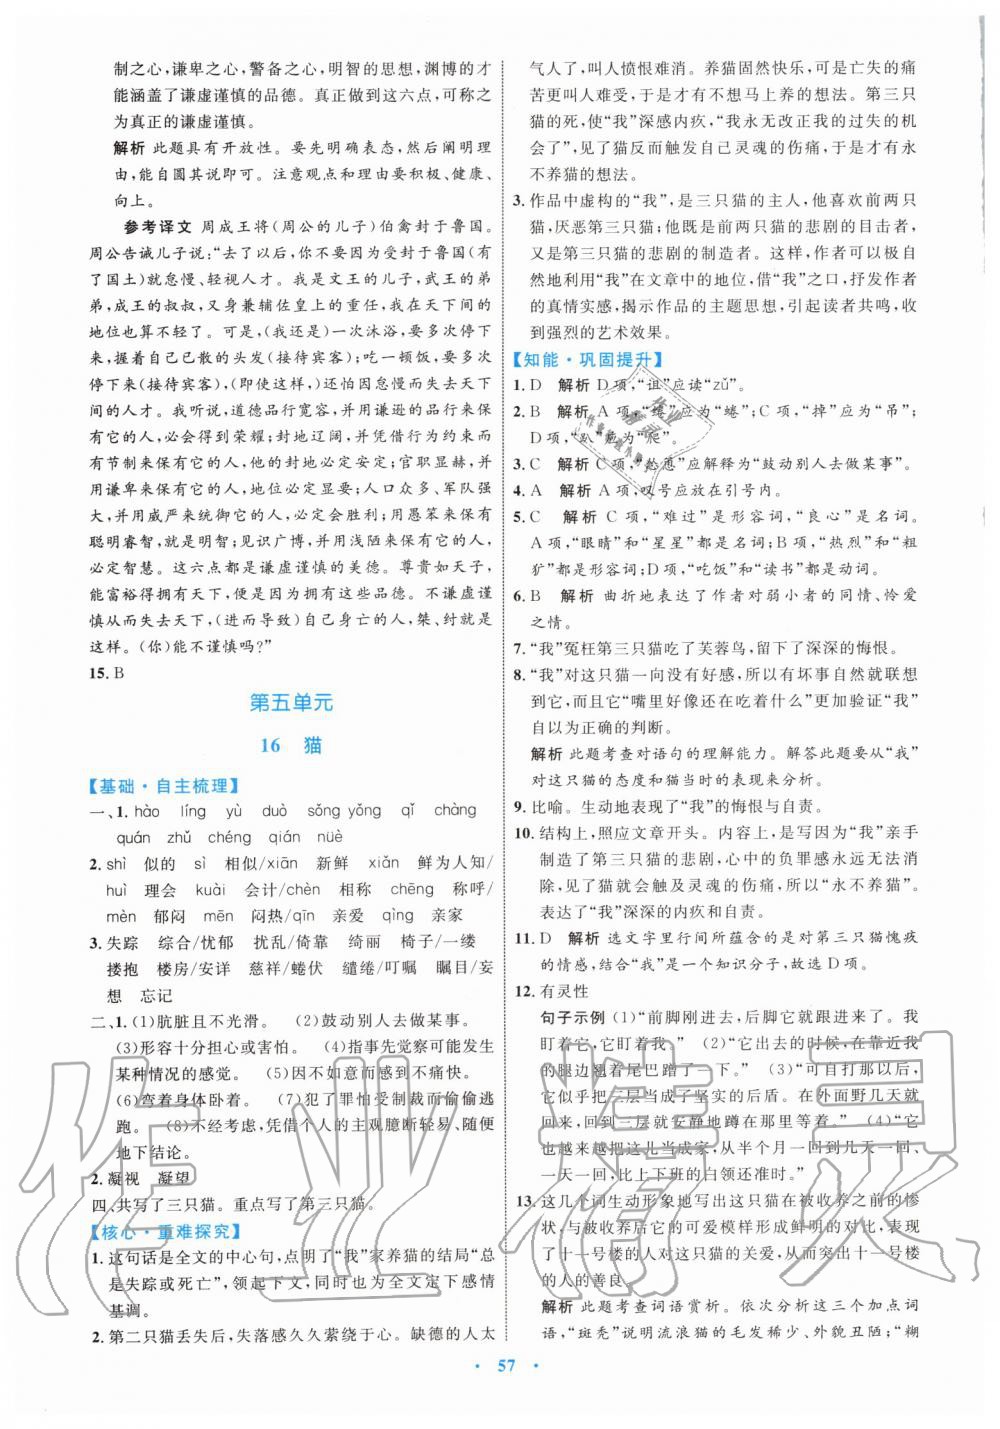 制之心，谦卑之心，警备之心，明智的思想，渊博的才
能涵盖了谦虚谨慎的品德。真正做到这六点，可称之
为真正的谦虚谨慎。
解析 此题具有开放性。要先明确表态，然后阐明理
由，能自圆其说即可。注意观点和理由要积极、健康、
向上。
参考译文 周成王将(周公的儿子)伯禽封于鲁国。
周公告诫儿子说：“去了以后，你不要因为受封于鲁国(有
了国土)就怠慢、轻视人才。我是文王的儿子，武王的弟
弟，成王的叔叔，又身兼辅佐皇上的重任，我在天下间的
地位也算不轻了。可是，(我还是)一次沐浴，要多次停下
来，握着自己已散的头发(接待宾客)；吃一顿饭，要多次
停下来(接待宾客)，(这样)还怕因怠慢而失去天下
间的人才。我听说，道德品行宽容，并用谦逊的品行来保
有它的人，必定会得到荣耀；封地辽阔，并凭借行为约束而
有节制来保有它的人，他的封地必定安定；官职显赫，并用
谦卑来保有它的人，必定会高贵；人口众多、军队强
大，并用威严来统御它的人，必定会胜利；用愚笨来保有
聪明睿智，就是明智；见识广博，并用浅陋来保有它的人，
必定智慧。这六点都是谦虚谨慎的美德。尊贵如天子，
能富裕得拥有天下，便是因为拥有这些品德。不谦虚谨
慎而失去天下，(进而导致)自己身亡的人，桀、纣就是
这样。(你)能不谨慎吗？”
15. B
第五单元
16 猫
【基础·自主梳理】
一、1. hào líng yù duò sǒng yǒng qǐ chàng
quán zhǔ chéng qián nüè
2. shì 似的 sì 相似/xiān 新鲜 xiǎn 鲜为人知/
huì 理会 kuài 会计/chèn 相称 chēng 称呼/
mèn 郁闷 mēn 闷热/qīn 亲爱 qìng 亲家
3. 失踪 综合/忧郁 扰乱/倚靠 绮丽 椅子/一缕
搂抱 楼房/安详 慈祥/蜷伏 缱绻/叮嘱 瞩目/妄
想 忘记
二、1. (1)肮脏且不光滑。 (2)鼓动别人去做某事。
(3)形容十分担心或害怕。 (4)指事先觉察可能发生
某种情况的感觉。 (5)因不如意而感到不痛快。
(6)弯着身体卧着。 (7)犯了罪怕受制裁而偷偷逃
跑。 (8)不经考虑，凭借个人的主观臆断轻易、随便
地下结论。
2. 凝视 凝望
四、共写了三只猫。重点写了第三只猫。
【核心·重难探究】
1. 这句话是全文的中心句，点明了“我”家养猫的结局“总
是失踪或死亡”，领起下文，并为全文定下感情
基调。
2. 第二只猫丢失后，失落感久久萦绕于心。缺德的人太
气人了，叫人愤恨难消。养猫固然快乐，可是亡失的痛
苦更叫人难受，于是才有不想马上养的想法。第三只
猫的死，使“我”深感内疚，“我永无改正我的过失的机
会了”，见了猫反而触发自己灵魂的伤痛，于是才有永
不养猫的想法。
3. 作品中虚构的“我”，是三只猫的主人，他喜欢前两只
猫，厌恶第三只猫；他既是前两只猫的悲剧的目击者，
又是第三只猫的悲剧的制造者。这样，作者可以自
然地利用“我”在文章中的地位，借“我”之口，抒发作者
的真情实感，揭示作品的主题思想，引起读者共鸣，收
到强烈的艺术效果。
【知能·巩固提升】
1. D 解析 D项，“诅”应读“zǔ”。
2. B 解析 A项，“绻”应为“蜷”；C项，“掉”应为“吊”；
D项，“趴”应为“爬”。
3. C 解析 C项，“怂恿”应解释为“鼓动别人去做某事”。
4. A 解析 A项，叹号应放在引号内。
5. C 解析 C项，“难过”是形容词，“良心”是名词。
A项，“眼睛”和“星星”都是名词；B项，“热烈”和“粗
犷”都是形容词；D项，“吃饭”和“读书”都是动词。
6. B 解析 曲折地表达了作者对弱小者的同情、怜爱
之情。
7. “我”冤枉第三只猫吃了芙蓉鸟，留下了深深的悔恨。
8. “我”对这只猫一向没有好感，所以有坏事自然就联想
到它，而且它“嘴里好像还在吃着什么”更加验证“我”
自以为正确的判断。
解析 此题考查对语句的理解能力。解答此题要从“我”
对这只猫的态度和猫当时的表现来分析。
9. 比喻。生动地表现了“我”的悔恨与自责。
10. 结构上，照应文章开头。内容上，是写因为“我”亲手
制造了第三只猫的悲剧，心中的负罪感永远无法消
除，见了猫就会触及灵魂的伤痛，所以“永不养猫”。
表达了“我”深深的内疚和自责。
11. D 解析 选文字里行间所蕴含的是对第三只猫愧疚
的情感，结合“我”是一个知识分子，故选D项。
12. 有灵性
句子示例 (1)“前脚刚进去，后脚它就跟进来了。我
盯着它，它盯着我。” (2)“它出去的时候，在靠近我
的腿边翘着尾巴蹭了一下。” (3)“可自打那以后，
它似乎把三层当成了坚实的后盾。在外面野几天就
回来，回到三层就安静地蹲在那里等着。” (4)“它
也越来越把这儿当成家，从半个月一回，到几天一回、
一天一回，比上下班的白领还准时。”
13. 这几个词生动形象地写出这只猫在被收养之前的惨
状，与被收养后它的可爱模样形成鲜明的对比，表现
了十一号楼的人对这只猫的关爱，从而突出十一号楼
的人的善良。
解析 此题考查词语赏析。依次分析这三个加点词
语，“斑秃”说明流浪猫的毛发稀少、外貌丑陋；“糊
· 57 ·
作业精灵